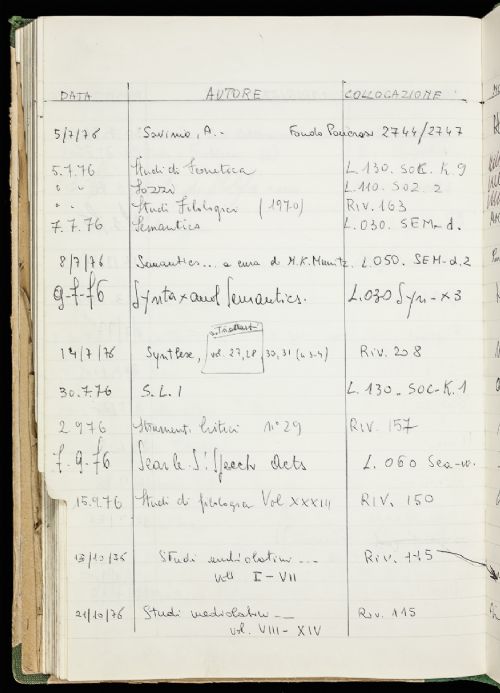 DATA AUTORE COLLOCAZIONE
5/7/76 Savinio, A.- Fondo Pancrazi 2744/2747
5.7.76 Studi di fonetica L.130. SOC. K.9
" " Sozzi L.110. SOZ. 2
" " Studi Filologici (1970) Riv. 163
7.7.76 Semantics L.030. SEM-d.
8/7/76 Semantics... a cura di M.K. Munitz L.050. SEM-d.2
9-7-76 Syntax and Semantics. L.030 Syn-x3
vol. 27, 28
14/7/76 Synthese, 30, 31 (n 3-4) Riv. 208
30.7.76 S.L.I L.130. SOC-K.1
2 9 76 Strumenti Critici n° 29 Riv. 157
7.9.76 Searle S: Speech Acts L. 060 Sea-w.
15.9.76 Studi di filologia Vol XXXIII RIV. 150
13/10/76 Studi mediolatini ... Riv. 115
voll I-VII
21/10/76 Studi mediolatini Riv. 115
vol. VIII-XIV